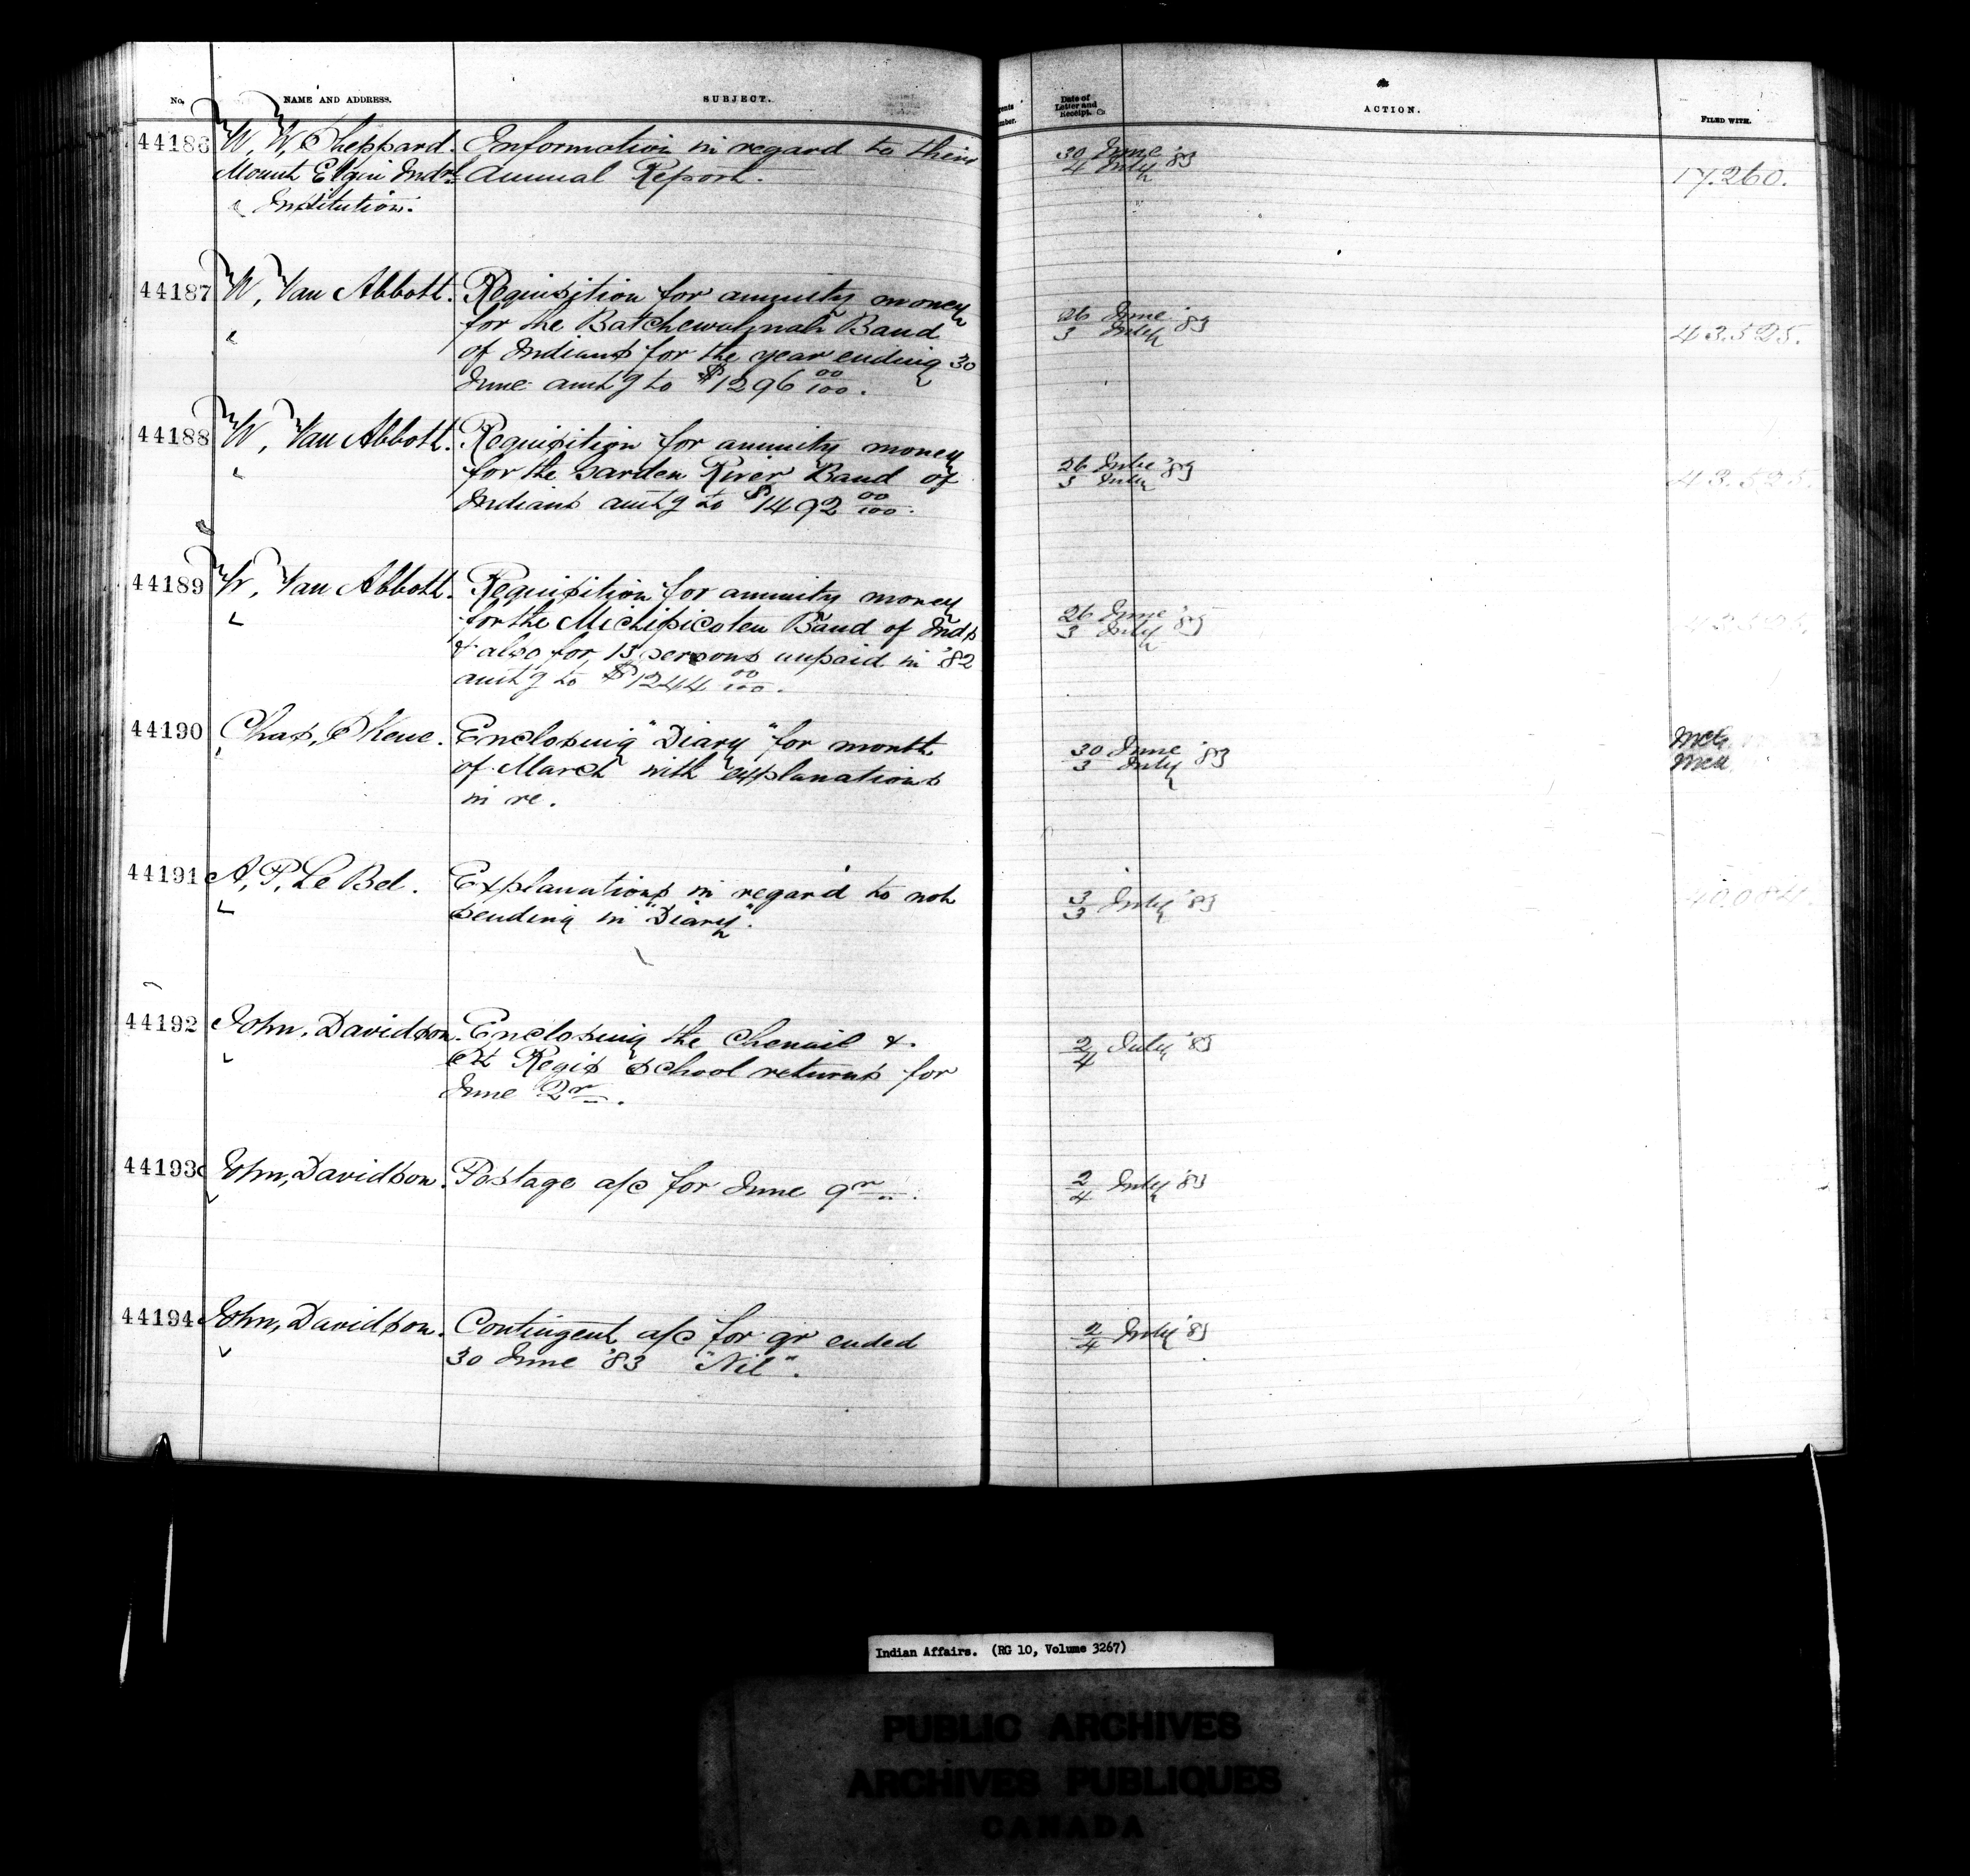 No. NAME AND ADDRESS. SUBJECT. Date of Letter and Receipt. ACTION. FILED WITH.
44186 W, W, Sheppard. Information in regard to their 30 June '83
Mount Elgin Indrl Annual Report. 4 July 17.260.
Institution.
44187 W, Van Abbott. Requisition for annuity money
for the Batchewahnah Band 26 June '83
of Indians for the year ending 30 3 July 43.525.
June amtg to $1296 00/100.
44188 W, Van Abbott. Requisition for annuity money
for the Garden River Band of 26 June '83
Indians amtg to $1492 00/100. 3 July 43.525.
44189 W, Van Abbott. Requisition for annuity money
for the Michipicoten Band of Inds 26 June '83
& also for 13 persons unpaid in '82 3 July
amtg to $1244 00/100.
44190 Chas, Skene. Enclosing "Diary" for month 30 June '83
of March with explanations 3 July
in re.
44191 A, P, Le Bel. Explanations in regard to not 3/3 July '83 40.084.
sending in "Diary".
44192 John, Davidson. Enclosing the Chenail & 2/4 July '83
St Regis School returns for
June Qr.
44193 John, Davidson. Postage a/c for June qr. 2/4 July '83
44194 John, Davidson. Contingent a/c for qr ended 2/4 July '83
30 June '83 "Nil".
Indian Affairs. (RG 10, Volume 3267)
PUBLIC ARCHIVES
ARCHIVES PUBLIQUES
CANADA